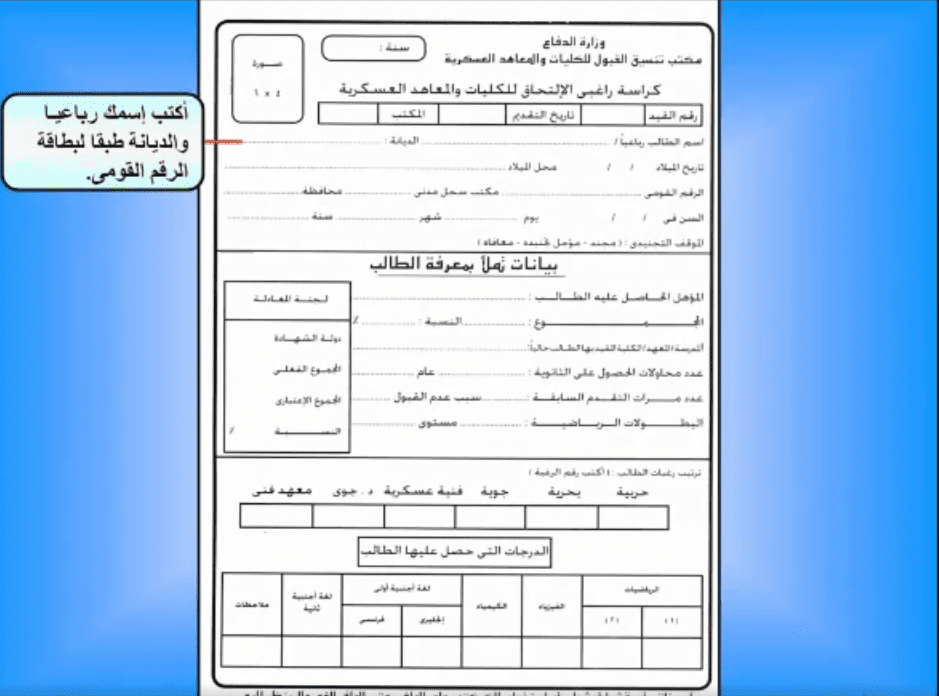 وزارة الدفاع
مكتب تنسيق القبول للكليات والمعاهد العسكرية
سنة :
صورة
٤ × ٦
كراسة راغبى الإلتحاق للكليات والمعاهد العسكرية
رقم القيد
تاريخ التقديم
المكتب
أكتب إسمك رباعيا
والديانة طبقا لبطاقة
الرقم القومى.
اسم الطالب رباعياً / الديانة :
تاريخ الميلاد / / محل الميلاد
الرقم القومى مكتب سجل مدنى محافظة
السن فى / / يوم شهر سنة
الموقف التجنيدى : ( مجند - مؤجل تجنيده - معافاه )
بيانات تملأ بمعرفة الطالب
المؤهل الحاصل عليه الطالب :
المجموع : النسبة : ٪
المدرسة / المعهد / الكلية المقيد بها الطالب حالياً :
عدد محاولات الحصول على الثانوية : عام
عدد مرات التقدم السابقة : سبب عدم القبول
البطولات الرياضية : مستوى
لجنة المعادلة
دولة الشهادة
المجموع الفعلى
المجموع الإعتبارى
النسبة ٪
ترتيب رغبات الطالب : ( أكتب رقم الرغبة )
حربية بحرية جوية فنية عسكرية د . جوى معهد فنى
الدرجات التى حصل عليها الطالب
الرياضيات الفيزياء الكيمياء لغة أجنبية أولى لغة أجنبية ثانية ملاحظات
(١) (٢) إنجليزى فرنسى